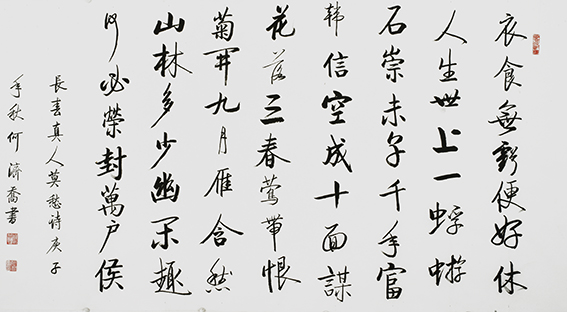 衣食無虧便好休
人生世上一蜉蝣
石崇未享千年富
韩信空成十面謀
花落三春莺帶恨
菊開九月雁含愁
山林多少幽閑趣
何必榮封萬户侯
長春真人莫愁诗庚子
年秋何濟喬書